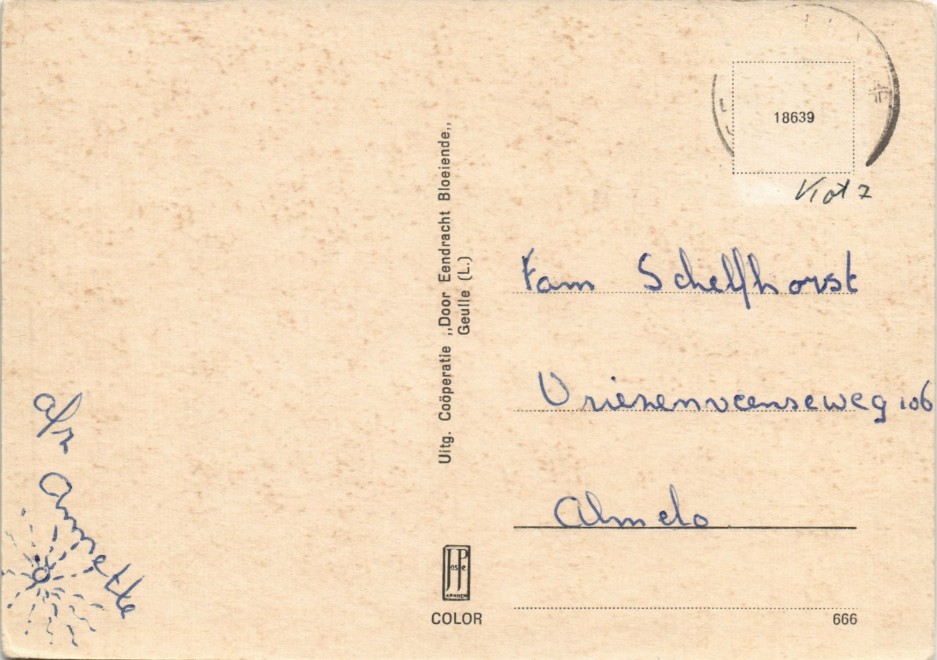 18639
Fam Schelfhorst
Vriezenveenseweg 106
Almelo
a/z
Annette
Uitg. Coöperatie „Door Eendracht Bloeiende„
Geulle (L.)
JosPé
ARNHEM
COLOR
666